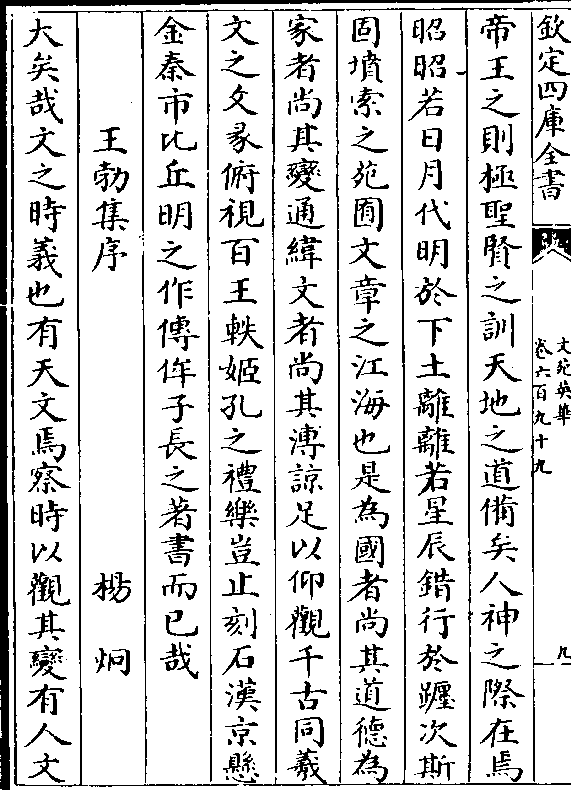 欽定四庫全書
文苑英華
卷六百九十九
九
帝王之則極聖賢之訓天地之道備矣人神之際在焉
昭昭若日月代明於下土離離若星辰錯行於躔次斯
固墳索之苑囿文章之江海也是為國者尚其道德為
家者尚其變通緯文者尚其溥諒足以仰觀千古同羲
文之爻彖俯視百王軼姬孔之禮樂豈止刻石漢京懸
金秦市比丘明之作傳侔子長之著書而已哉
王勃集序 楊炯
大矣哉文之時義也有天文焉察時以觀其變有人文